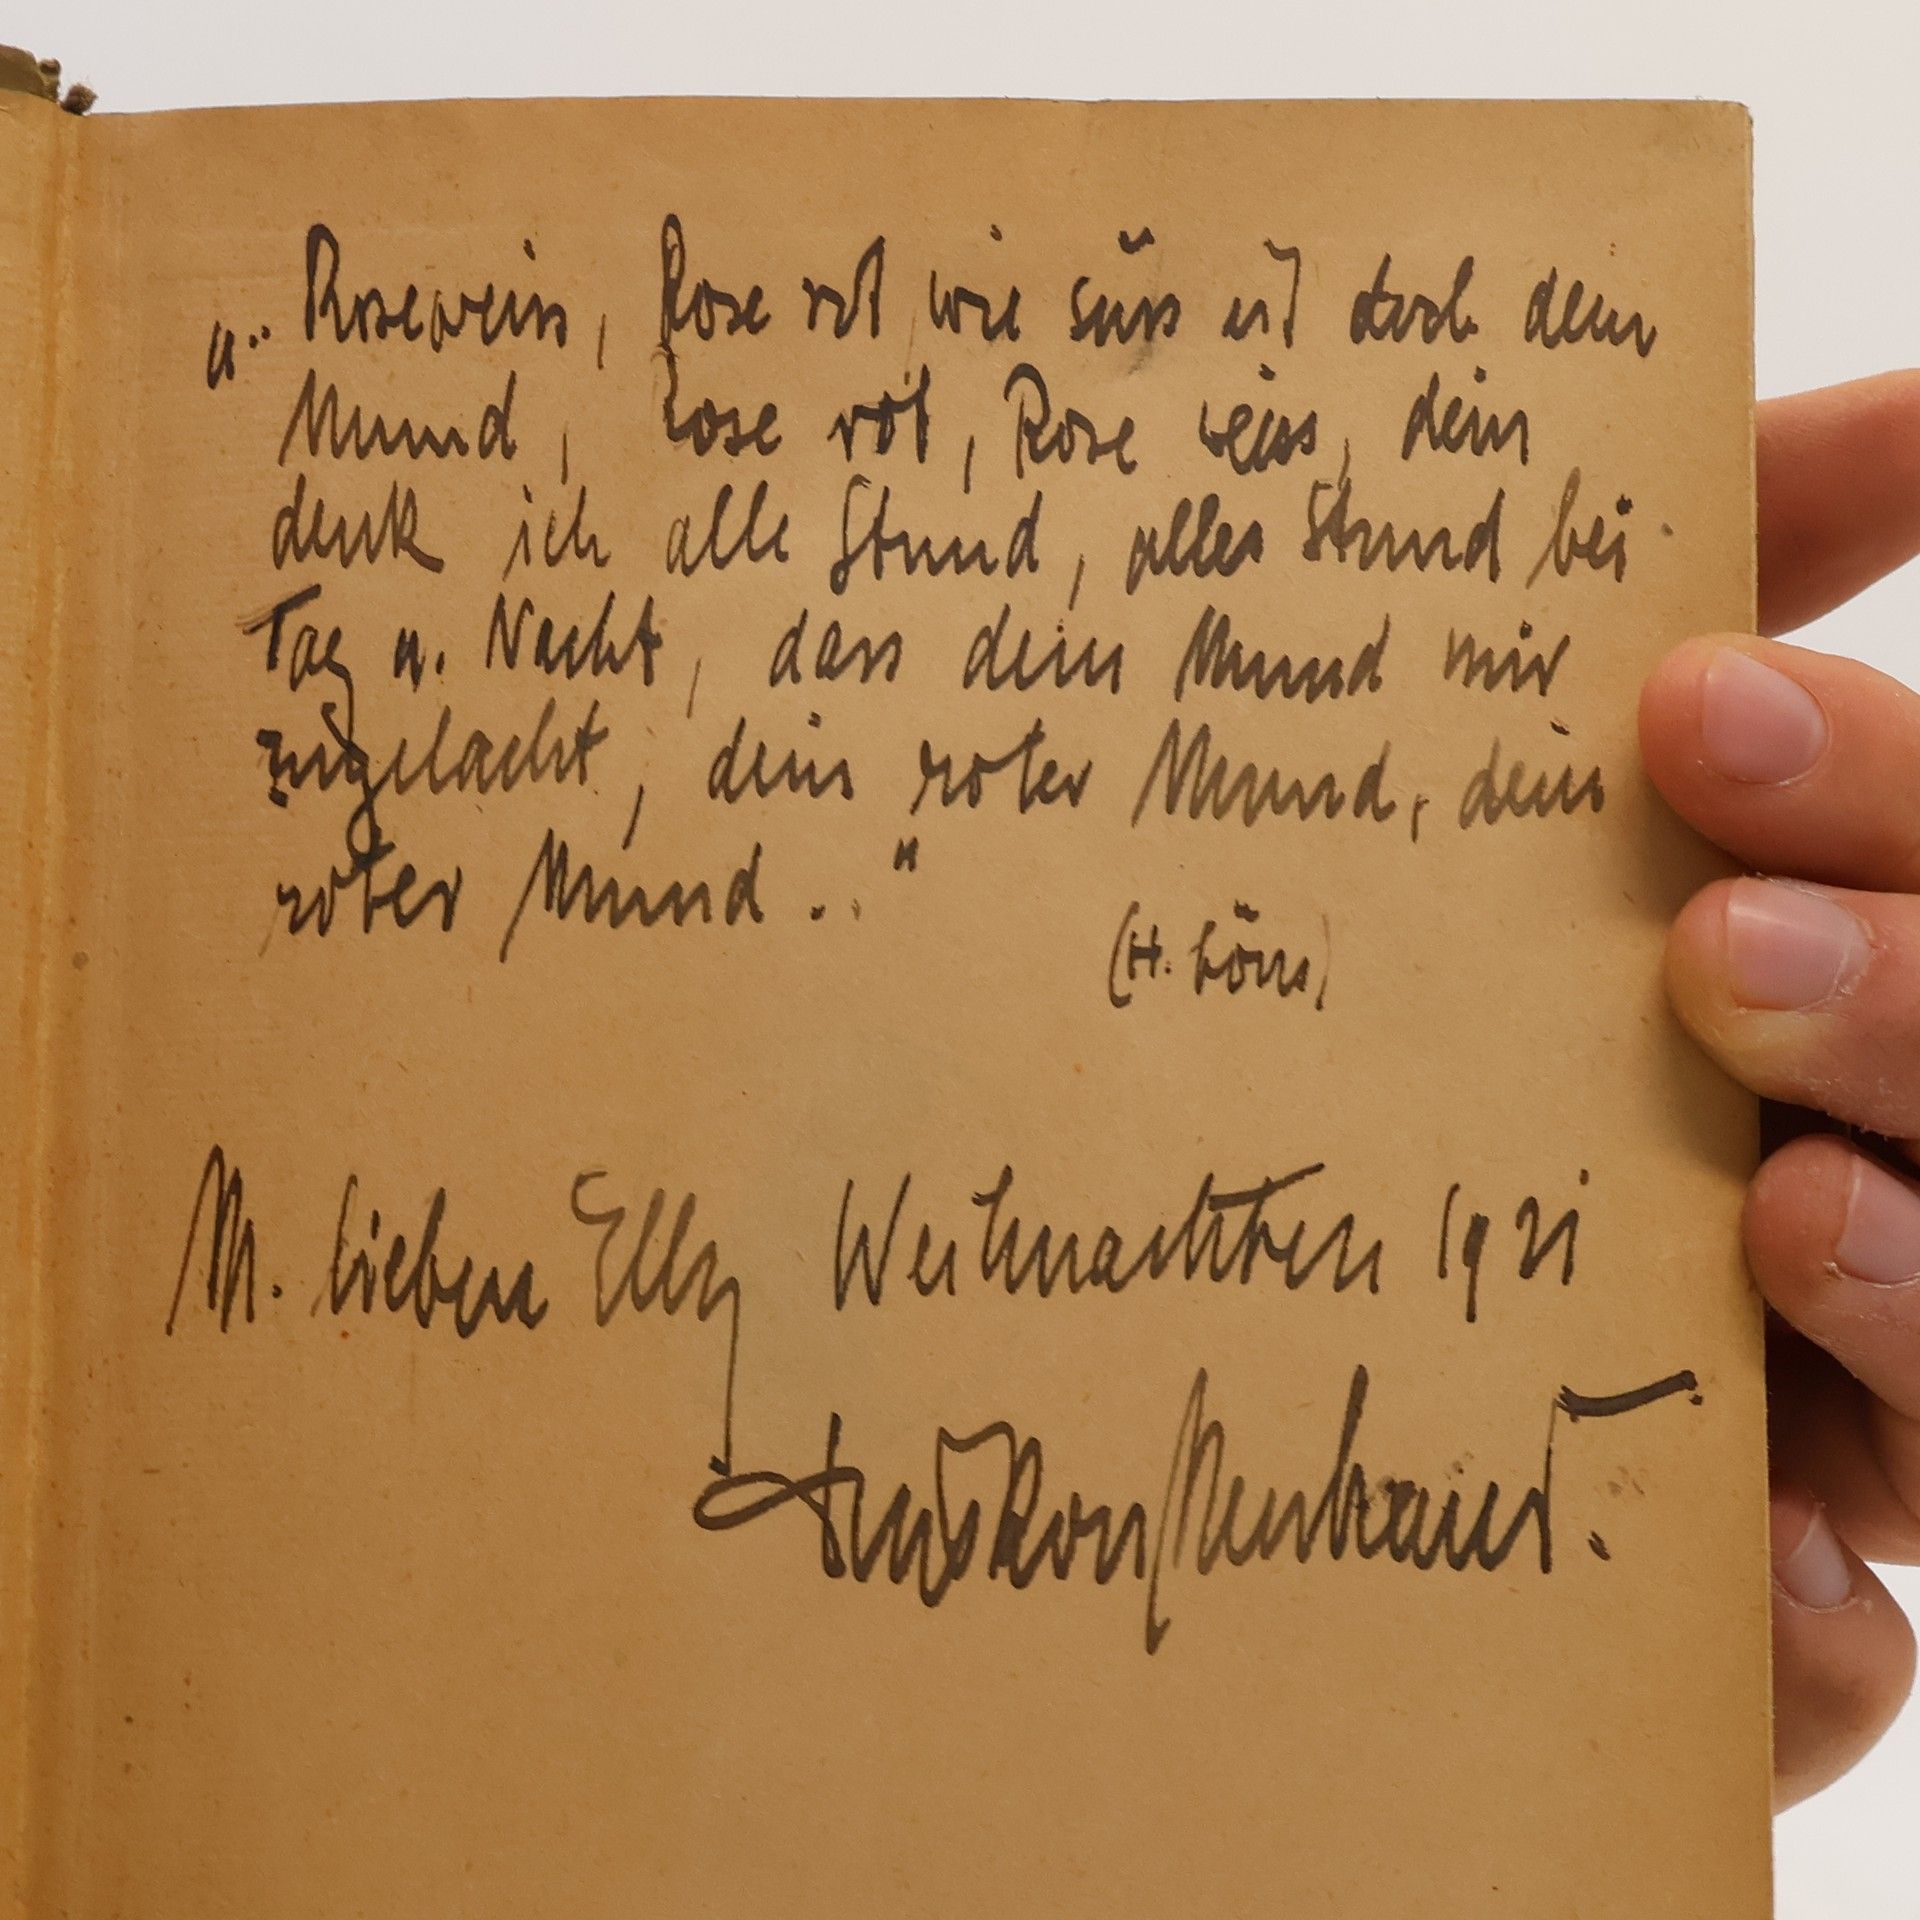 "Roseweiss, Rose rot wie süss ist doch dein
Mund, Rose rot, Rose weiss, dein
denk ich alle Stund, alles Stund bei
Tag u. Nacht, dass dein Mund mir
zugelacht, dein roter Mund, dein
roter Mund .."
(H. Löns)
M. lieben Elly Weihnachten 1921